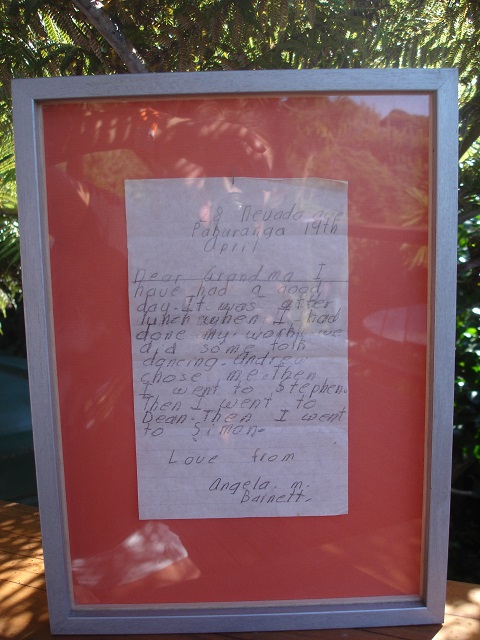 8 Nevada ave
Pakuranga 19th
April
Dear Grandma I
have had a good
day. It was after
lunch when I had
done my work we
did some folk
dancing. Andrew
chose me. Then
I went to Stephen.
Then I went to
Dean. Then I went
to Simon.
Love from
Angela. m.
Barnett.